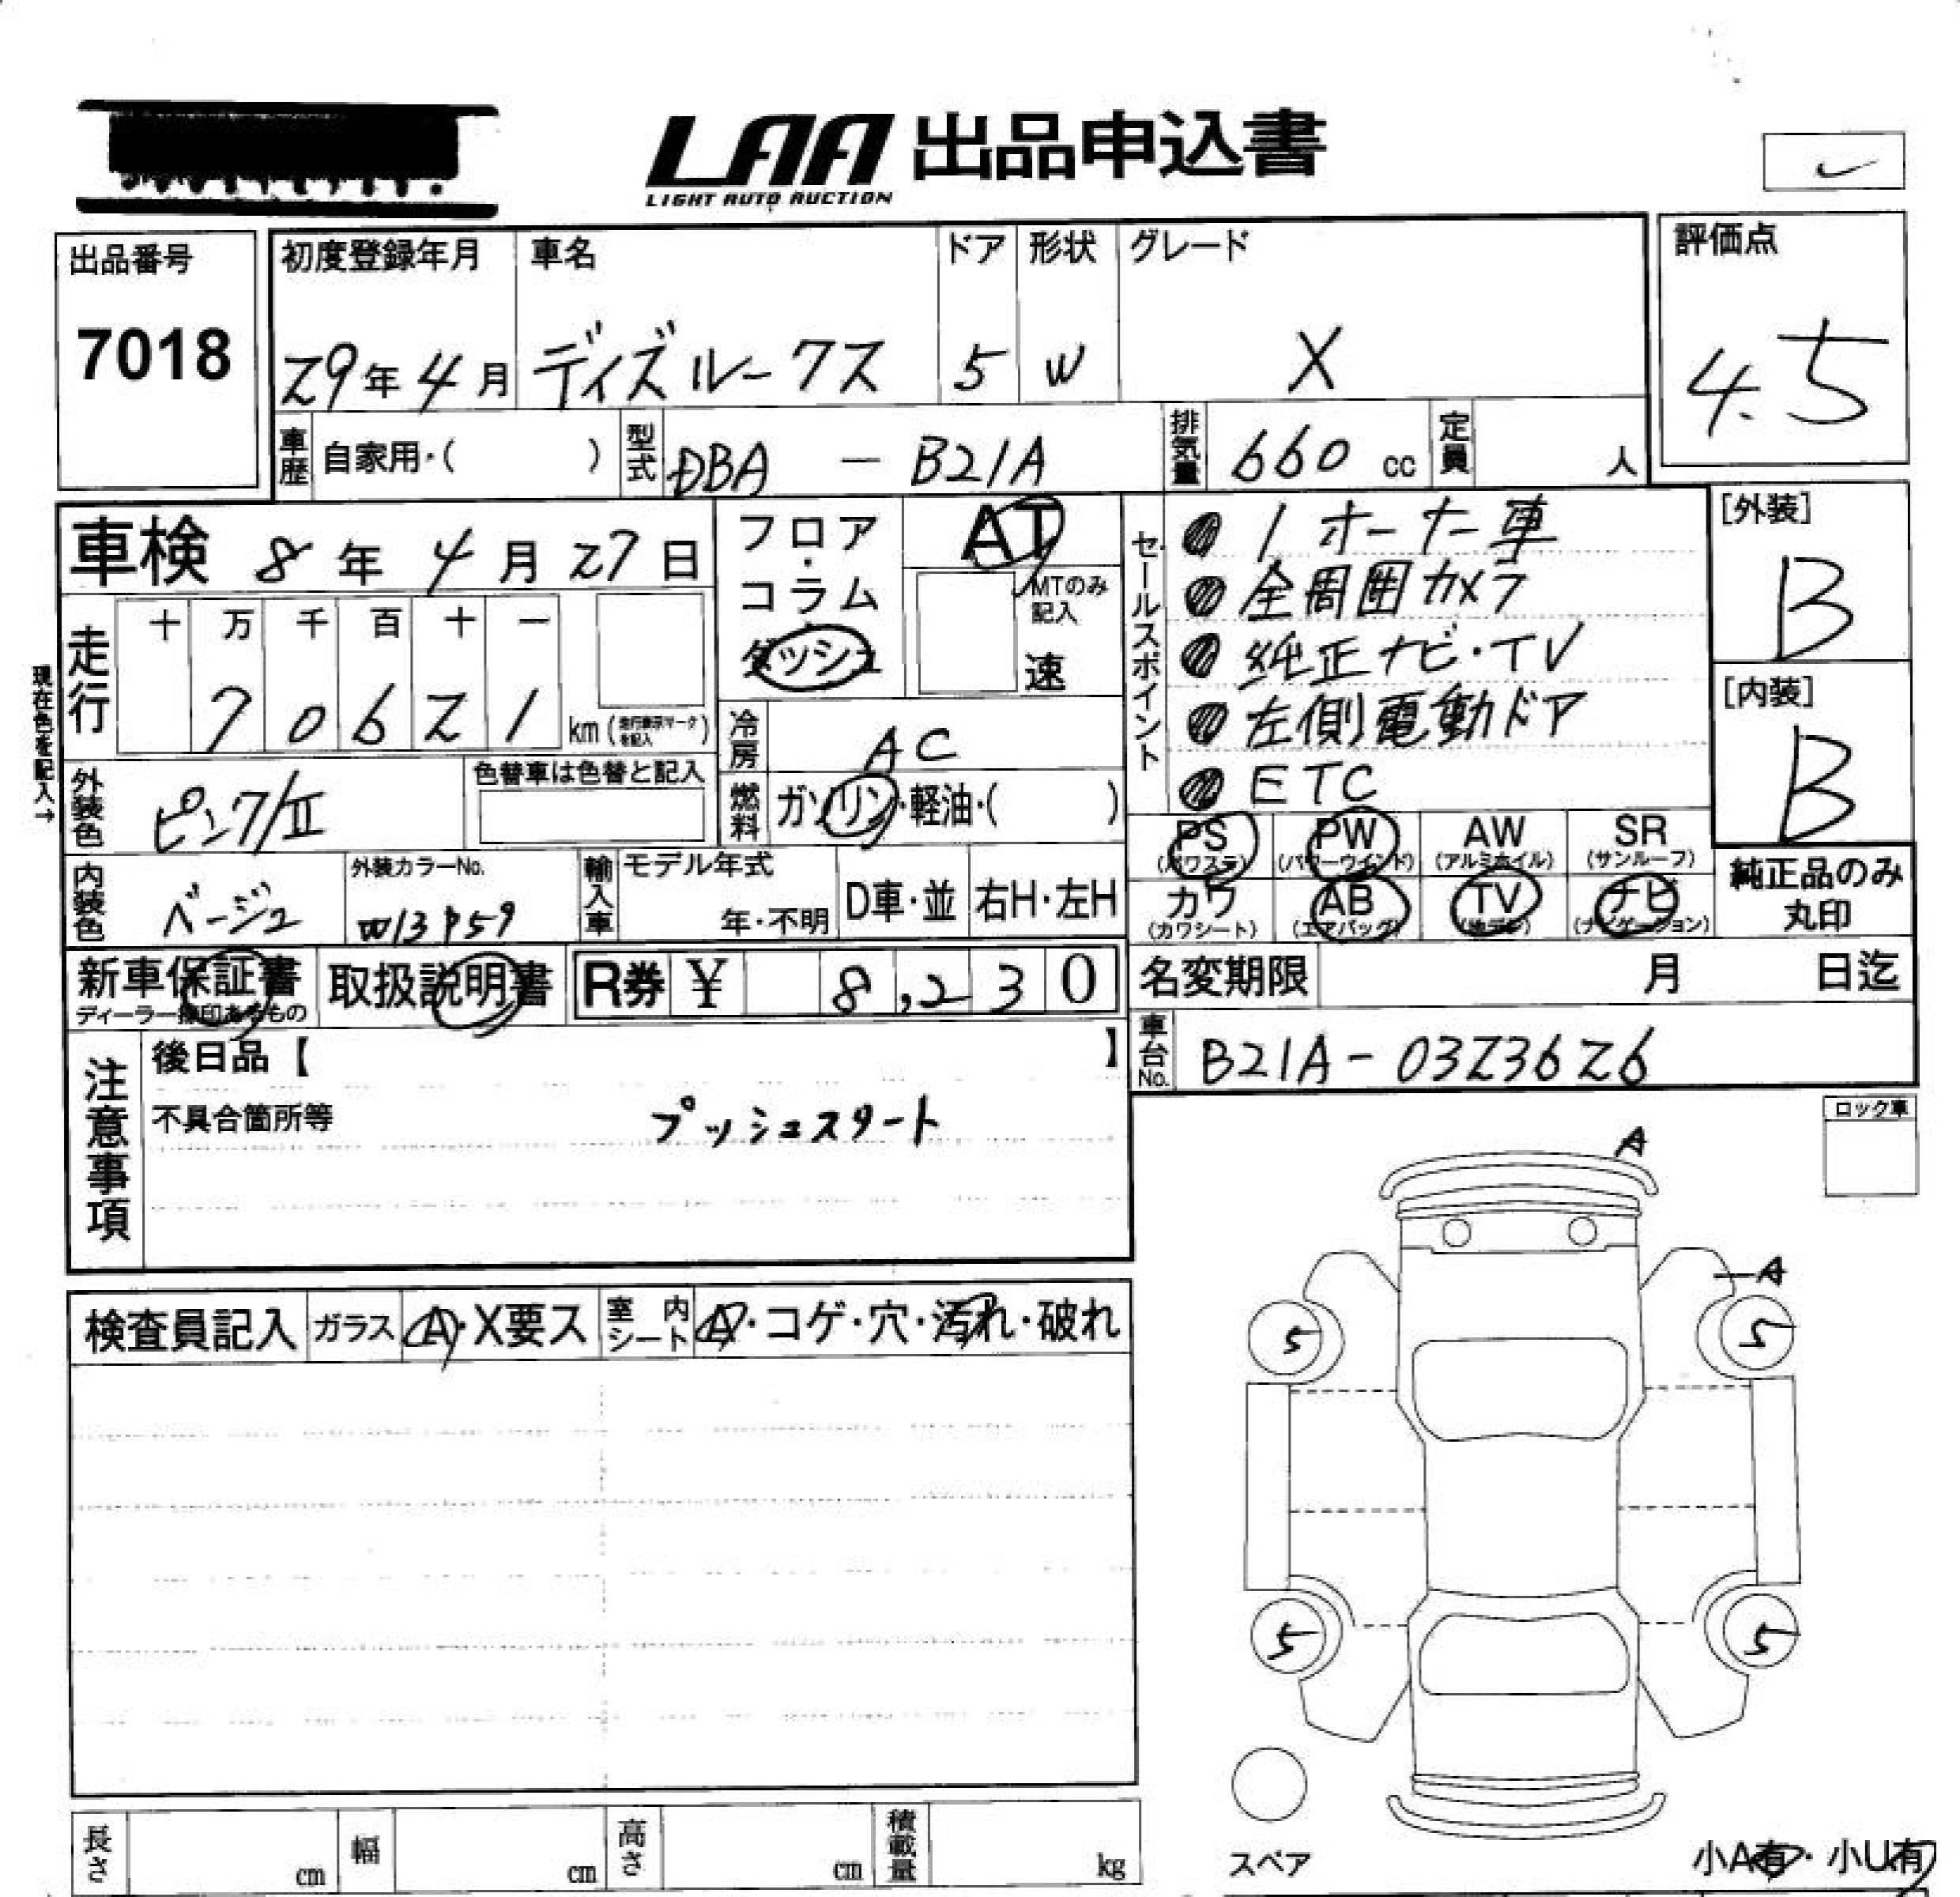 LAA 出品申込書
LIGHT AUTO AUCTION
出品番号
7018
初度登録年月 車名 ドア 形状 グレード
29年4月 ディズルークス 5 W X
評価点
4.5
車歴 自家用・( ) 型式 DBA - B21A 排気量 660 cc 定員 人
車検 8年4月27日
フロア・コラム・ダッシュ
AT
MTのみ記入
速
セールスポイント
1オーナー車
全周囲カメラ
純正ナビ・TV
左側電動ドア
ETC
[外装]
B
[内装]
B
現在色を記入→
走行 十 万 千 百 十 一
7 0 6 2 1 km (走行表示マークを記入)
冷房 AC
外装色 ピンク/II 色替車は色替と記入
燃料 ガソリン・軽油・( )
PS (パワステ) PW (パワーウインド) AW (アルミホイル) SR (サンルーフ)
カワ (カワシート) AB (エアバック) TV (地デジ) ナビ (ナビゲーション)
純正品のみ丸印
内装色 ベージュ 外装カラーNo. W13P59
輸入車 モデル年式 年・不明 D車・並 右H・左H
新車保証書 ディーラー捺印あるもの 取扱説明書 R券 ¥ 8,230
名変期限 月 日迄
車台No. B21A-0323626
注意事項
後日品【 】
不具合箇所等 プッシュスタート
ロック車
A
A
5 5
5 5
検査員記入 ガラス A・X要ス 室内シート A・コゲ・穴・汚れ・破れ
長さ cm 幅 cm 高さ cm 積載量 kg
スペア
小A有・小U有